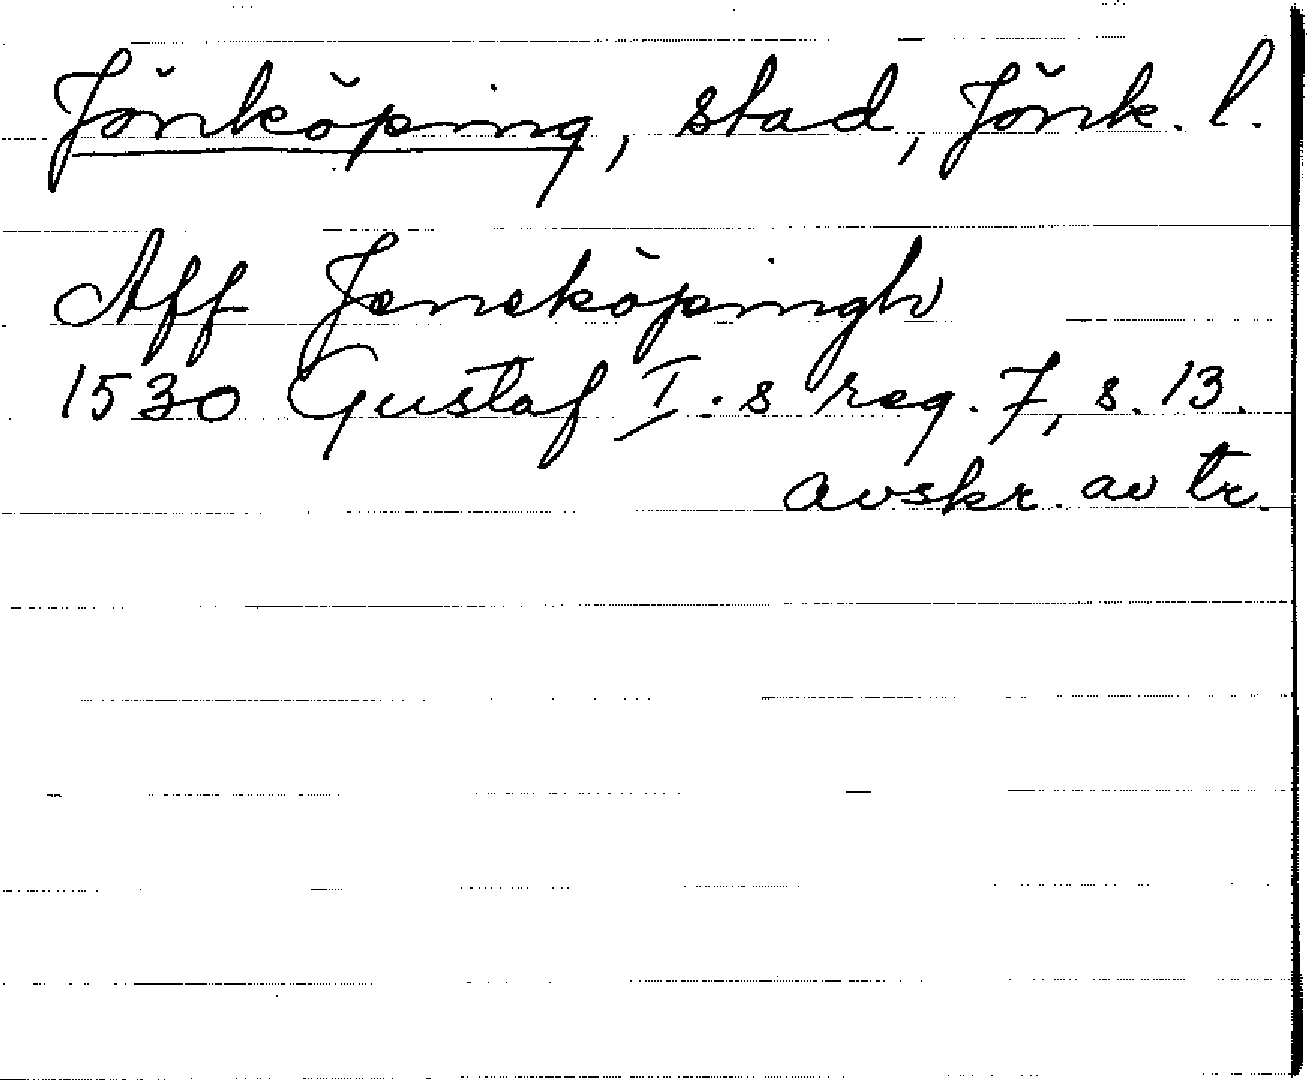 Jönköping, stad, Jönk. l.
Aff Jeneköpingh
1530 Gustaf I:s reg. 7, s. 13.
avskr. av tr.